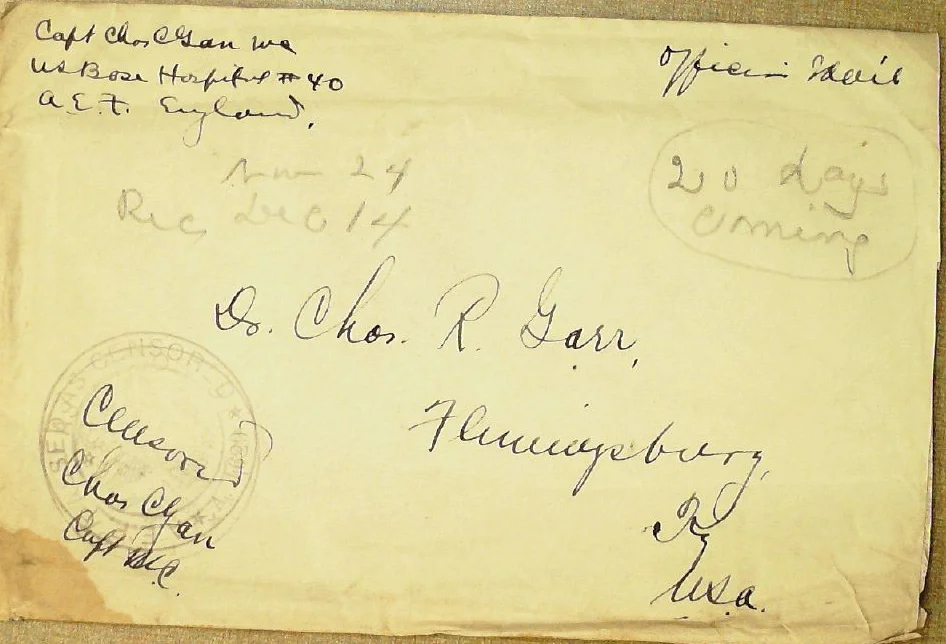 Capt Chas C Garr MC
US Base Hospital # 40
A.E.F. England,
Official Mail
Nov 24
Rec Dec 14
20 days
coming
Dr. Chas. R. Garr,
Flemingsburg,
Ky
U.S.a.
CENSORED
Censored
Chas C Garr
Capt M.C.